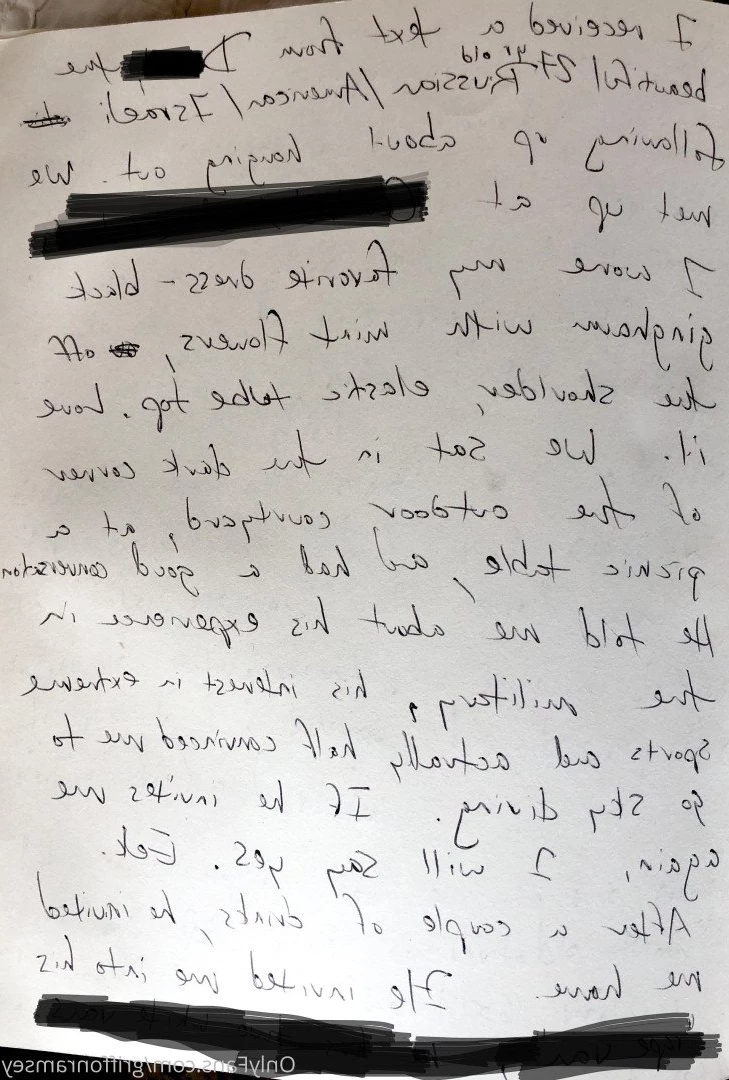 I received a text from D the
beautiful 27 yr old Russian/American/Israeli
following up about hanging out. We
met up at
I wore my favorite dress - black
gingham with mint flowers, off
the shoulder, elastic tube top. Love
it. We sat in the dark corner
of the outdoor courtyard, at a
picnic table, and had a good conversation
He told me about his experience in
the military, his interest in extreme
sports and actually half convinced me to
go sky diving. If he invites me
again, I will say yes. Eek.
After a couple of drinks, he invited
me home. He invited me into his
OnlyFans.com/griffonramsey